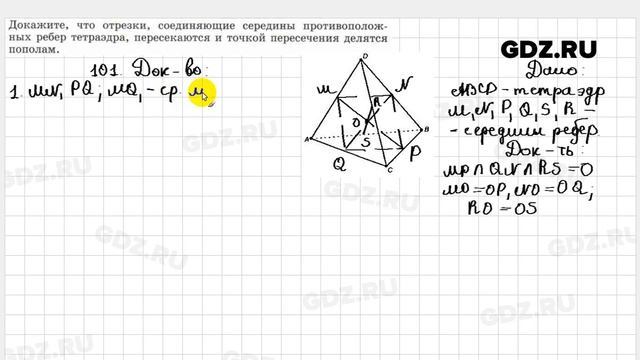 Докажите, что отрезки, соединяющие середины противополож-
ных ребер тетраэдра, пересекаются и точкой пересечения делятся
пополам.
GDZ.RU
101. Док-во:
1. MN, PQ; MQ, - ср. м
Дано:
ABCD - тетраэдр
M, N, P, Q, S, R -
- середины ребер
Док-ть:
MP ∩ QN ∩ RS = O
MO = OP, NO = OQ;
RO = OS
D
M
N
R
O
A
S
B
Q
P
C